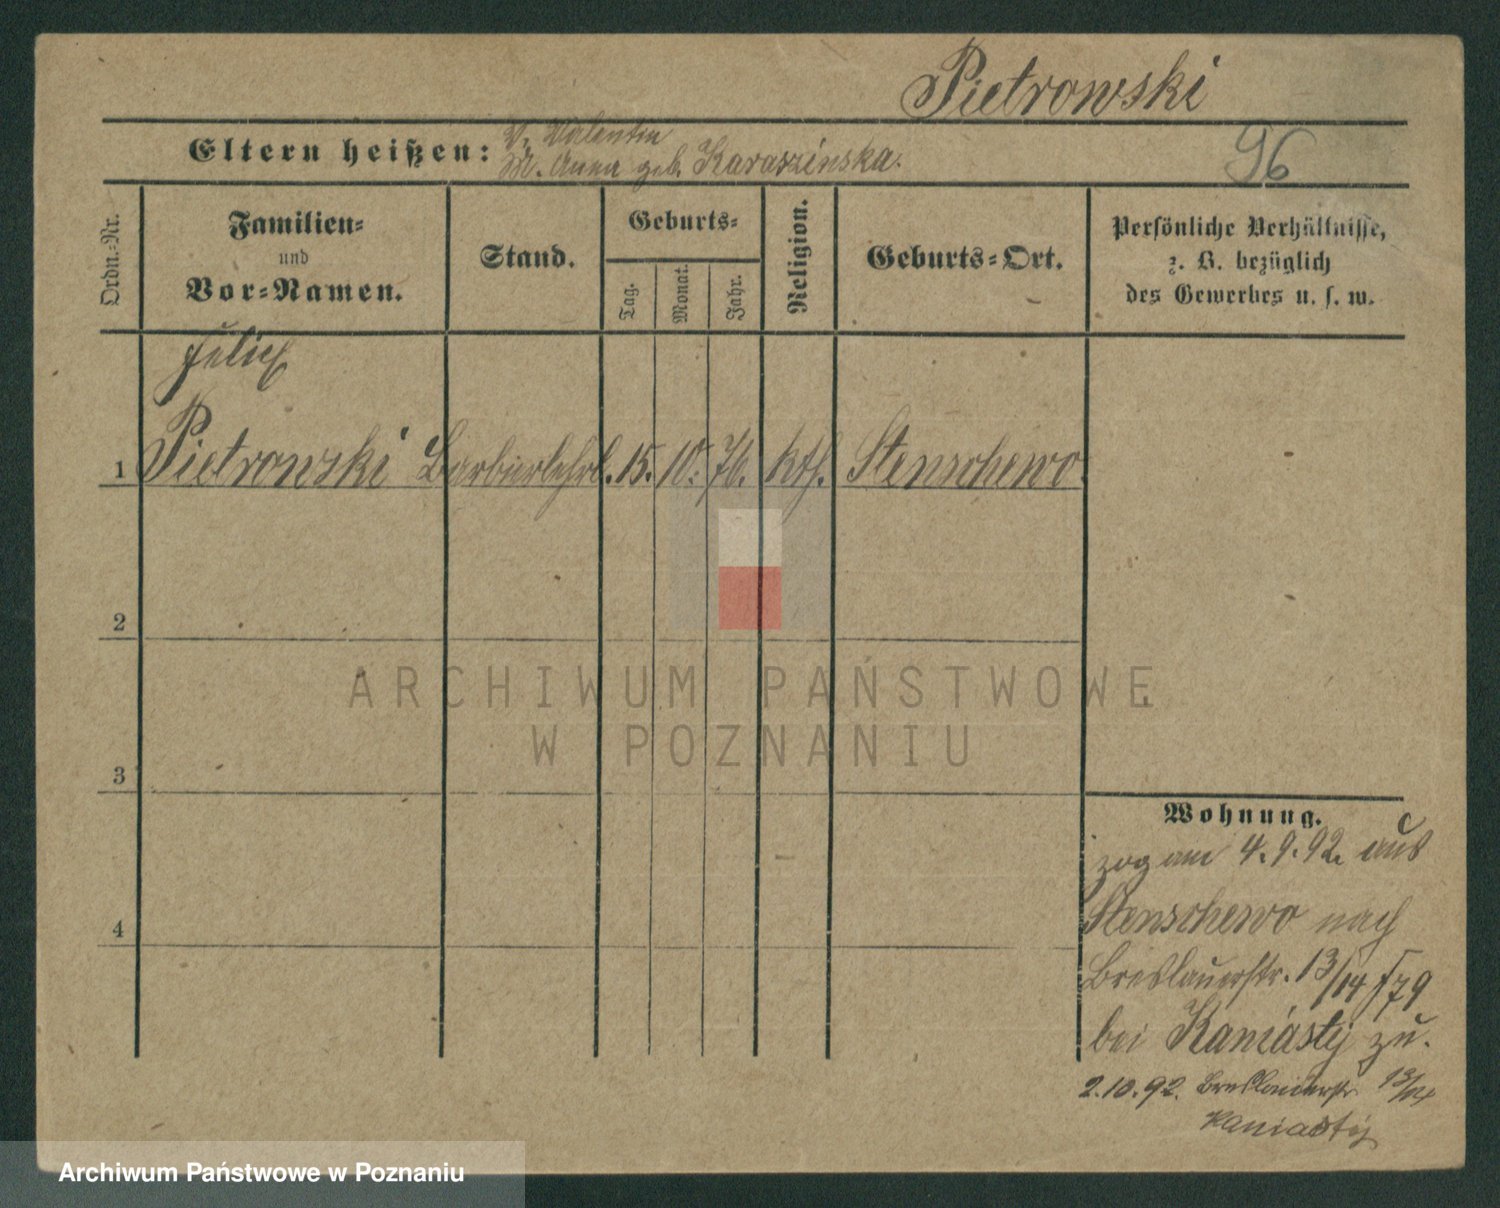 Pietrowski
Eltern heißen: V. Valentin
M. Anna geb. Karaszinska.
96
Ordn.-Nr.
Familien-
und
Vor-Namen.
Stand.
Geburts-
Tag.
Monat.
Jahr.
Religion.
Geburts-Ort.
Persönliche Verhältnisse,
z. B. bezüglich
des Gewerbes u. s. w.
Felix
1 Pietrowski Barbierlehrl. 15. 10. 76. kth. Stenschewo.
2
3
4
Wohnung.
zog am 4.9.92. aus
Stenschewo nach
Breslauerstr. 13/14
bei Kaniasty zu.
2.10.92. Breslauerstr. 13/14
Kaniasty
ARCHIWUM PAŃSTWOWE
W POZNANIU
Archiwum Państwowe w Poznaniu